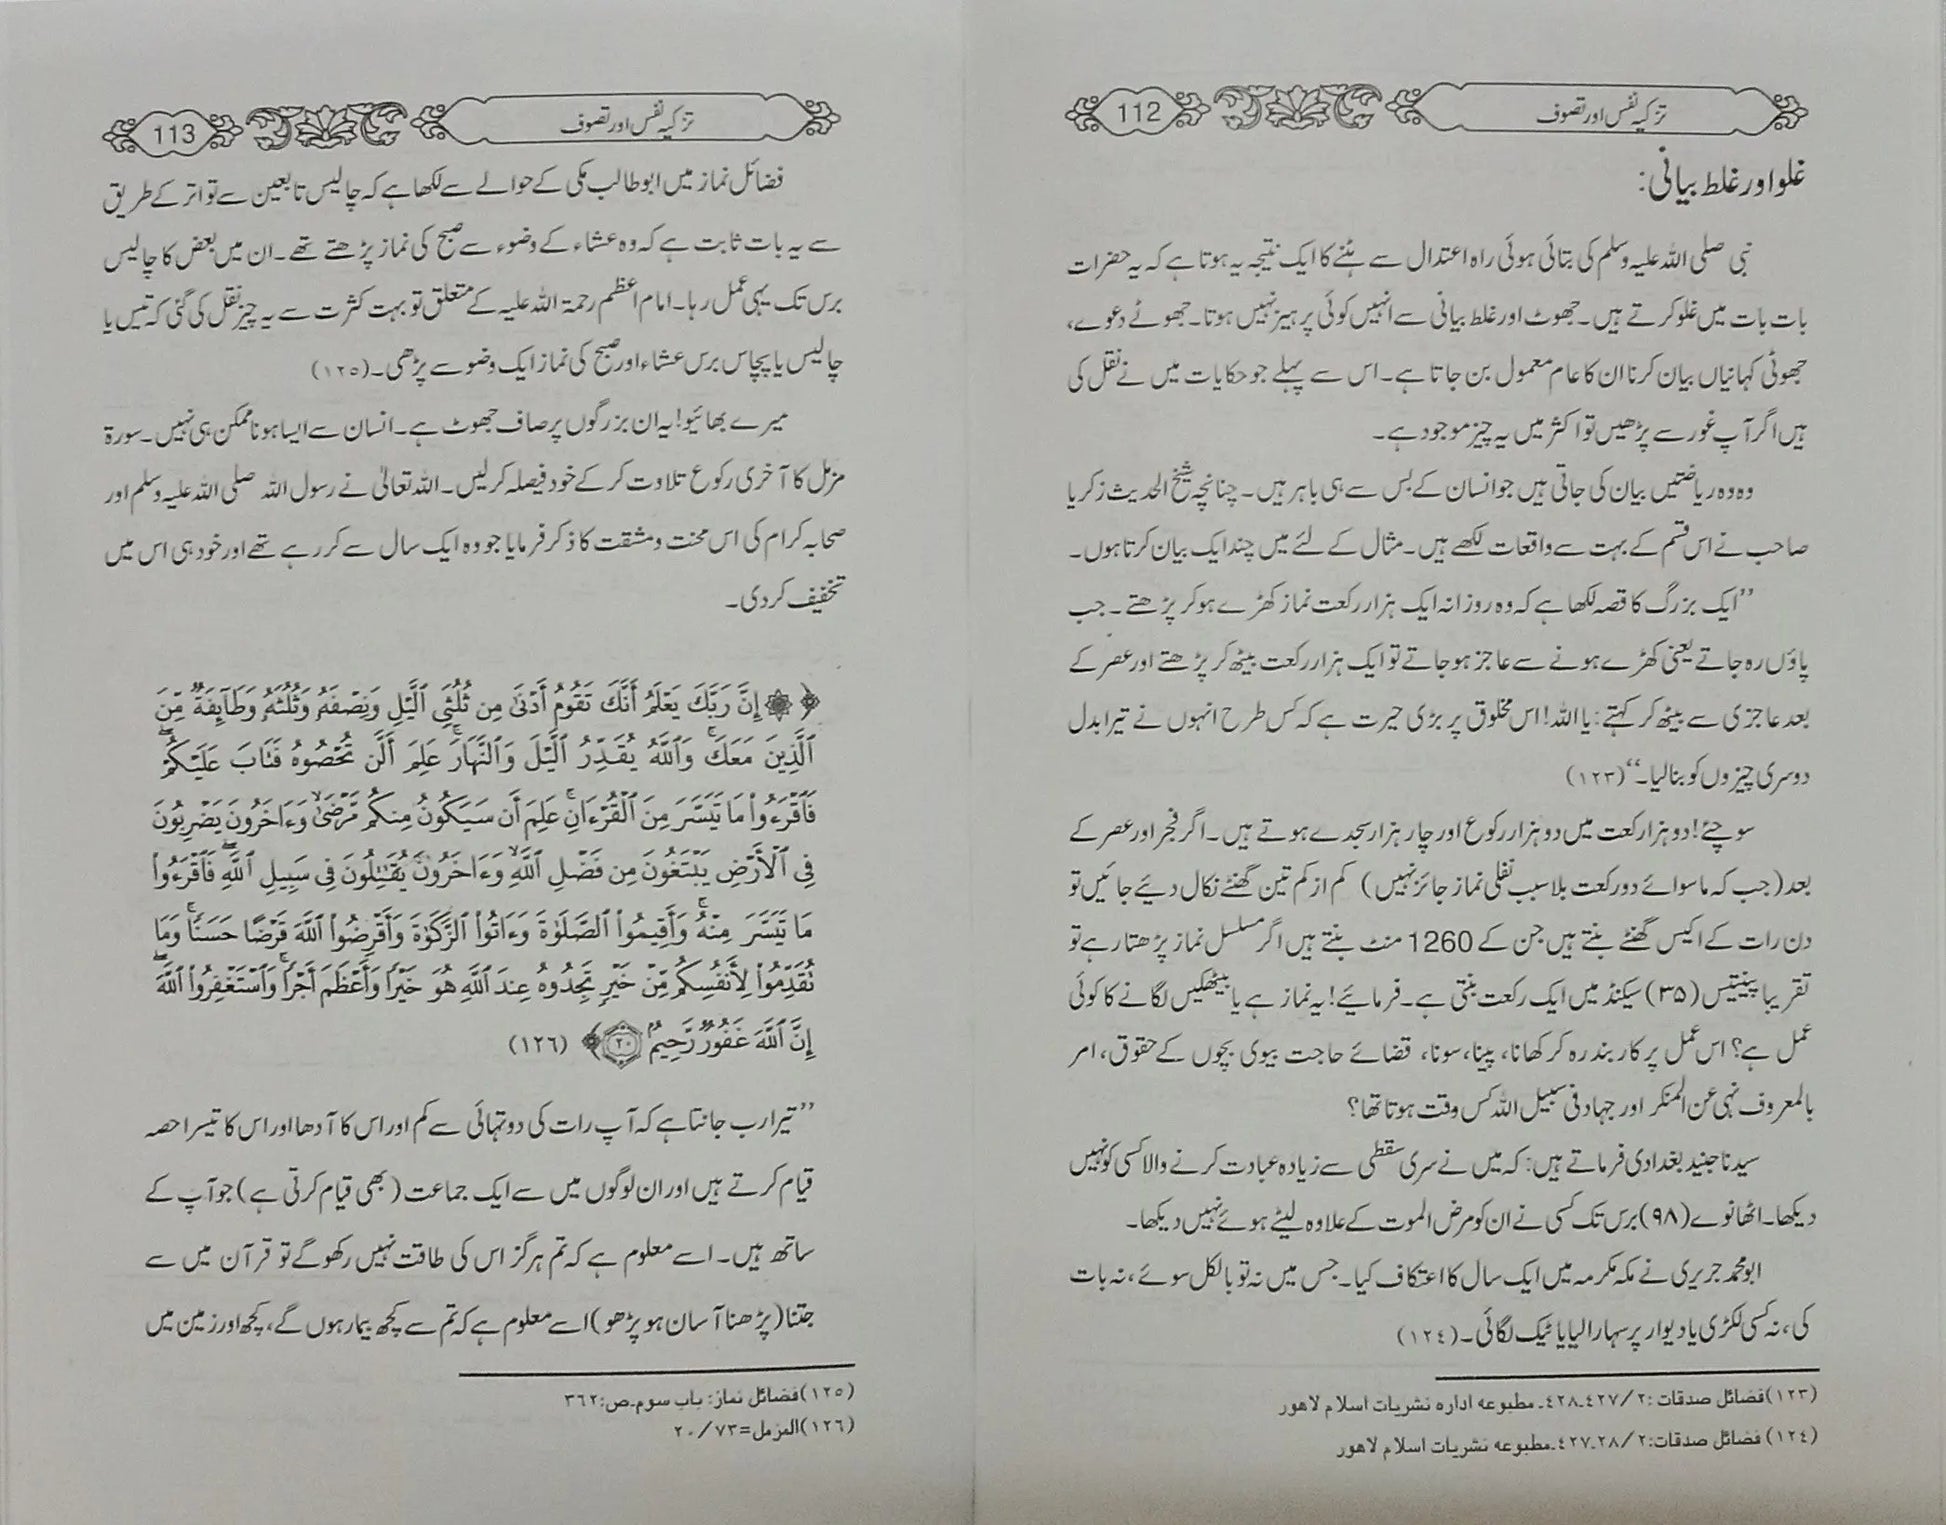 تزکیہ نفس اور تصوف
112
غلو اور غلط بیانی:
نبی صلی اللہ علیہ وسلم کی بتائی ہوئی راہ اعتدال سے ہٹنے کا ایک نتیجہ یہ ہوتا ہے کہ یہ حضرات
بات بات میں غلو کرتے ہیں۔ جھوٹ اور غلط بیانی سے انہیں کوئی پرہیز نہیں ہوتا۔ جھوٹے دعوے،
جھوٹی کہانیاں بیان کرنا ان کا عام معمول بن جاتا ہے۔ اس سے پہلے جو حکایات میں نے نقل کی
ہیں اگر آپ غور سے پڑھیں تو اکثر میں یہ چیز موجود ہے۔
وہ وہ ریاضتیں بیان کی جاتی ہیں جو انسان کے بس سے ہی باہر ہیں۔ چنانچہ شیخ الحدیث زکریا
صاحب نے اس قسم کے بہت سے واقعات لکھے ہیں۔ مثال کے لئے میں چند ایک بیان کرتا ہوں۔
”ایک بزرگ کا قصہ لکھا ہے کہ وہ روزانہ ایک ہزار رکعت نماز کھڑے ہو کر پڑھتے۔ جب
پاؤں رہ جاتے یعنی کھڑے ہونے سے عاجز ہو جاتے تو ایک ہزار رکعت بیٹھ کر پڑھتے اور عصر کے
بعد عاجزی سے بیٹھ کر کہتے: یا اللہ! اس مخلوق پر بڑی حیرت ہے کہ کس طرح انہوں نے تیرا بدل
دوسری چیزوں کو بنا لیا۔“ (١٢٣)
سوچئے! دو ہزار رکعت میں دو ہزار رکوع اور چار ہزار سجدے ہوتے ہیں۔ اگر فجر اور عصر کے
بعد (جب کہ ماسوائے دو رکعت بلا سبب نفلی نماز جائز نہیں) کم از کم تین گھنٹے نکال دیئے جائیں تو
دن رات کے اکیس گھنٹے بنتے ہیں جن کے 1260 منٹ بنتے ہیں اگر مسلسل نماز پڑھتا رہے تو
تقریبا پینتیس (۳۵) سیکنڈ میں ایک رکعت بنتی ہے۔ فرمائیے! یہ نماز ہے یا بیٹھکیں لگانے کا کوئی
عمل ہے؟ اس عمل پر کاربند رہ کر کھانا، پینا، سونا، قضائے حاجت بیوی بچوں کے حقوق، امر
بالمعروف نہی عن المنکر اور جہاد فی سبیل اللہ کس وقت ہوتا تھا؟
سیدنا جنید بغدادی فرماتے ہیں: کہ میں نے سری سقطی سے زیادہ عبادت کرنے والا کسی کو نہیں
دیکھا۔ اٹھانوے (۹۸) برس تک کسی نے ان کو مرض الموت کے علاوہ لیٹے ہوئے نہیں دیکھا۔
ابو محمد جریری نے مکہ مکرمہ میں ایک سال کا اعتکاف کیا۔ جس میں نہ تو بالکل سوئے، نہ بات
کی، نہ کسی لکڑی یا دیوار پر سہارا لیا یا ٹیک لگائی۔ (١٢٤)
(١٢٣) فضائل صدقات: ٢/ ٤٢٧۔٤٢٨۔ مطبوعہ ادارہ نشریات اسلام لاهور
(١٢٤) فضائل صدقات: ٢/ ٢٨۔٤٢٧۔ مطبوعہ نشریات اسلام لاهور
تزکیہ نفس اور تصوف
113
فضائل نماز میں ابو طالب مکی کے حوالے سے لکھا ہے کہ چالیس تابعین سے تواتر کے طریق
سے یہ بات ثابت ہے کہ وہ عشاء کے وضوء سے صبح کی نماز پڑھتے تھے۔ ان میں بعض کا چالیس
برس تک یہی عمل رہا۔ امام اعظم رحمۃ اللہ علیہ کے متعلق تو بہت کثرت سے یہ چیز نقل کی گئی کہ تیس یا
چالیس یا پچاس برس عشاء اور صبح کی نماز ایک وضو سے پڑھی۔ (١٢٥)
میرے بھائیو! یہ ان بزرگوں پر صاف جھوٹ ہے۔ انسان سے ایسا ہونا ممکن ہی نہیں۔ سورۃ
مزمل کا آخری رکوع تلاوت کر کے خود فیصلہ کر لیں۔ اللہ تعالیٰ نے رسول اللہ صلی اللہ علیہ وسلم اور
صحابہ کرام کی اس محنت و مشقت کا ذکر فرمایا جو وہ ایک سال سے کر رہے تھے اور خود ہی اس میں
تخفیف کر دی۔
﴿۞ إِنَّ رَبَّكَ يَعْلَمُ أَنَّكَ تَقُومُ أَدْنَىٰ مِن ثُلُثَىِ ٱلَّيْلِ وَنِصْفَهُۥ وَثُلُثَهُۥ وَطَآئِفَةٌ مِّنَ
ٱلَّذِينَ مَعَكَ ۚ وَٱللَّهُ يُقَدِّرُ ٱلَّيْلَ وَٱلنَّهَارَ ۚ عَلِمَ أَلَّن تُحْصُوهُ فَتَابَ عَلَيْكُمْ ۖ
فَٱقْرَءُوا۟ مَا تَيَسَّرَ مِنَ ٱلْقُرْءَانِ ۚ عَلِمَ أَن سَيَكُونُ مِنكُم مَّرْضَىٰ ۙ وَءَاخَرُونَ يَضْرِبُونَ
فِى ٱلْأَرْضِ يَبْتَغُونَ مِن فَضْلِ ٱللَّهِ ۙ وَءَاخَرُونَ يُقَٰتِلُونَ فِى سَبِيلِ ٱللَّهِ ۖ فَٱقْرَءُوا۟
مَا تَيَسَّرَ مِنْهُ ۚ وَأَقِيمُوا۟ ٱلصَّلَوٰةَ وَءَاتُوا۟ ٱلزَّكَوٰةَ وَأَقْرِضُوا۟ ٱللَّهَ قَرْضًا حَسَنًا ۚ وَمَا
تُقَدِّمُوا۟ لِأَنفُسِكُم مِّنْ خَيْرٍ تَجِدُوهُ عِندَ ٱللَّهِ هُوَ خَيْرًا وَأَعْظَمَ أَجْرًا ۚ وَٱسْتَغْفِرُوا۟ ٱللَّهَ ۖ
إِنَّ ٱللَّهَ غَفُورٌ رَّحِيمٌۢ ٢٠﴾ (١٢٦)
”تیرا رب جانتا ہے کہ آپ رات کی دو تہائی سے کم اور اس کا آدھا اور اس کا تیسرا حصہ
قیام کرتے ہیں اور ان لوگوں میں سے ایک جماعت (بھی قیام کرتی ہے) جو آپ کے
ساتھ ہیں۔ اسے معلوم ہے کہ تم ہرگز اس کی طاقت نہیں رکھو گے تو قرآن میں سے
جتنا (پڑھنا آسان ہو پڑھو) اسے معلوم ہے کہ تم سے کچھ بیمار ہوں گے، کچھ اور زمین میں
(١٢٥) فضائل نماز: باب سوم۔ ص: ٣٦٢
(١٢٦) المزمل= ٧٣/ ٢٠